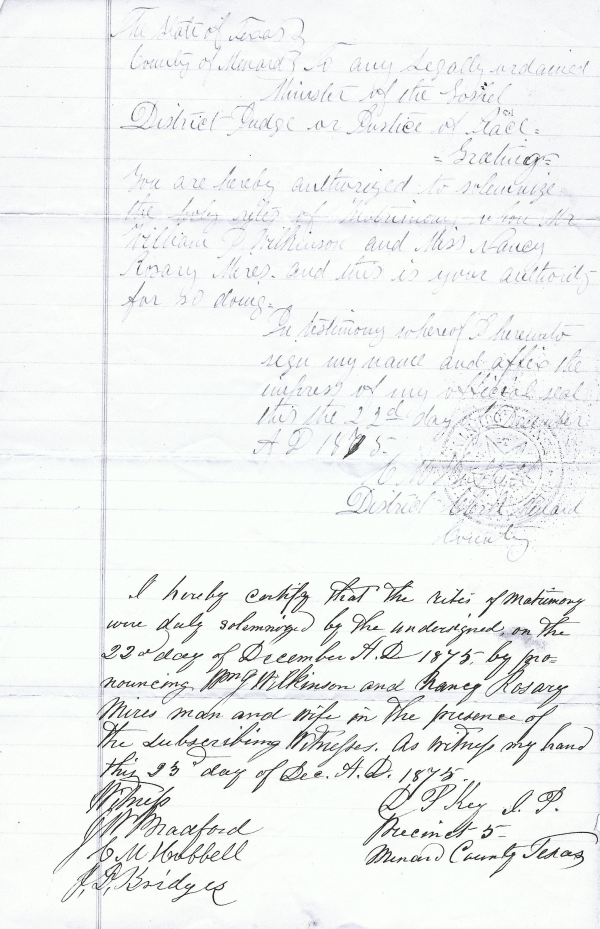 The State of Texas }
County of Menard } To any Legally ordained
Minister of the Gospel
District Judge or Justice of Peace =
= Greeting =
You are hereby authorized to solemnize
the holy rites of Matrimony upon Mr
William Wilkinson and Miss Nancy
Rosary Mires. and this is your authority
for so doing.
In testimony whereof I hereunto
sign my name and affix the
impress of my official seal
this the 22d day of December
A D 1875.
District Clerk Menard
County
I hereby certify that the rites of Matrimony
were duly solemnized by the undersigned, on the
22d day of December A.D. 1875. by pro-
nouncing Wm Wilkinson and Nancy Rosary
Mires man and wife in the presence of
the subscribing Witnesses. As witness my hand
this 23d day of Dec. A.D. 1875.
Witness
D P Key J. P.
J W Bradford
Precinct 5
C M Hubbell
Menard County Texas
J. D. Bridges